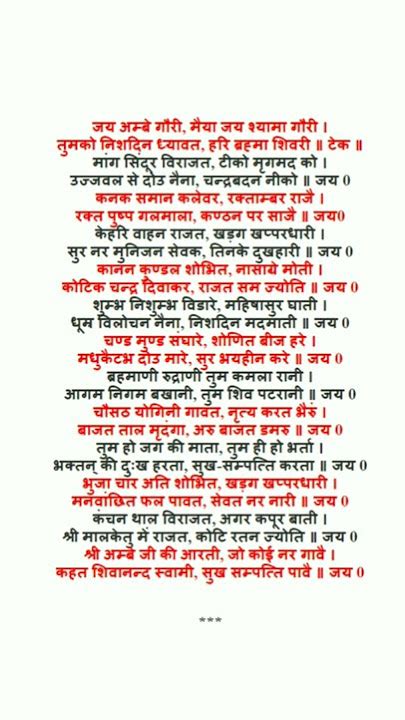 जय अम्बे गौरी, मैया जय श्यामा गौरी ।
तुमको निशदिन ध्यावत, हरि ब्रह्मा शिवरी ॥ टेक ॥
मांग सिंदूर विराजत, टीको मृगमद को ।
उज्जवल से दोउ नैना, चन्द्रबदन नीको ॥ जय 0
कनक समान कलेवर, रक्ताम्बर राजै ।
रक्त पुष्प गलमाला, कण्ठन पर साजै ॥ जय0
केहरि वाहन राजत, खड़ग खप्परधारी ।
सुर नर मुनिजन सेवक, तिनके दुखहारी ॥ जय 0
कानन कुण्डल शोभित, नासाग्रे मोती ।
कोटिक चन्द्र दिवाकर, राजत सम ज्योति ॥ जय 0
शुम्भ निशुम्भ विडारे, महिषासुर घाती ।
धूम्र विलोचन नैना, निशदिन मदमाती ॥ जय 0
चण्ड मुण्ड संघारे, शोणित बीज हरे ।
मधुकैटभ दोउ मारे, सुर भयहीन करे ॥ जय 0
ब्रहमाणी रुद्राणी तुम कमला रानी ।
आगम निगम बखानी, तुम शिव पटरानी ॥ जय 0
चौसठ योगिनी गावत, नृत्य करत भैरुं ।
बाजत ताल मृदंगा, अरु बाजत डमरु ॥ जय 0
तुम हो जग की माता, तुम ही हो भर्ता ।
भक्तन् की दुःख हरता, सुख-सम्पत्ति करता ॥ जय 0
भुजा चार अति शोभित, खड़ग खप्परधारी ।
मनवांछित फल पावत, सेवत नर नारी ॥ जय 0
कंचन थाल विराजत, अगर कपूर बाती ।
श्री मालकेतु में राजत, कोटि रतन ज्योति ॥ जय 0
श्री अम्बे जी की आरती, जो कोई नर गावै ।
कहत शिवानन्द स्वामी, सुख सम्पत्ति पावै ॥ जय 0
***